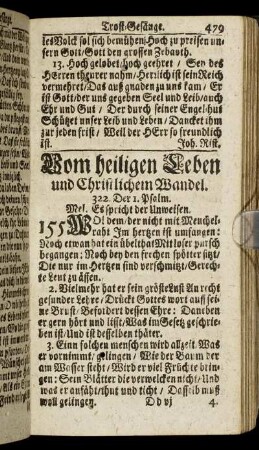 Trost-Gesänge. 479
ses Volck sol sich bemühen/Hoch zu preisen un-
sern Gott/Gott den grossen Zebaoth.
13. Hoch gelobet/hoch geehret / Sey des
Herren theurer nahm/Herzlich ist sein Reich
vermehret/Das auß gnaden zu uns kam/ Er
ist Gott/der uns gegeben Seel und Leib/auch
Ehr und Gut / Der durch seiner Engel-hut
Schützet unser Leib und Leben/ Dancket ihm
zur jeden frist / Weil der HErr so freundlich
ist. Joh. Rist.
Vom heiligen Leben
und Christlichem Wandel.
322. Der 1. Psalm.
Mel. Es spricht der Unweisen.
155 WOl dem der nicht mit Meuchel-
raht Im hertzen ist umfangen:
Noch etwan hat ein übelthat Mit loser parsch
begangen: Noch bey den frechen spötter sitzt/
Die nur im Hertzen sind verschmitzt/Gerech-
te Leut zu
2. Vielmehr hat er sein gröste Lust An recht
gesunder Lehre/ Drückt Gottes wort auff sei-
ne Brust/ Befordert dessen Ehre: Daneben
er gern hört und lißt/Was im Gesetz geschrie-
ben ist/Und ist desselben thäter.
3. Einn solchen menschen wird allzeit Was
er vornimmt/ gelingen / Wie der Baum der
am Wasser steht / Wird er viel Früchte brin-
gen: Sein Blätter die verwelcken nicht/Und
was er anfäht/thut und ticht/ Dasselb muß
woll gelingen. D d vj 4.